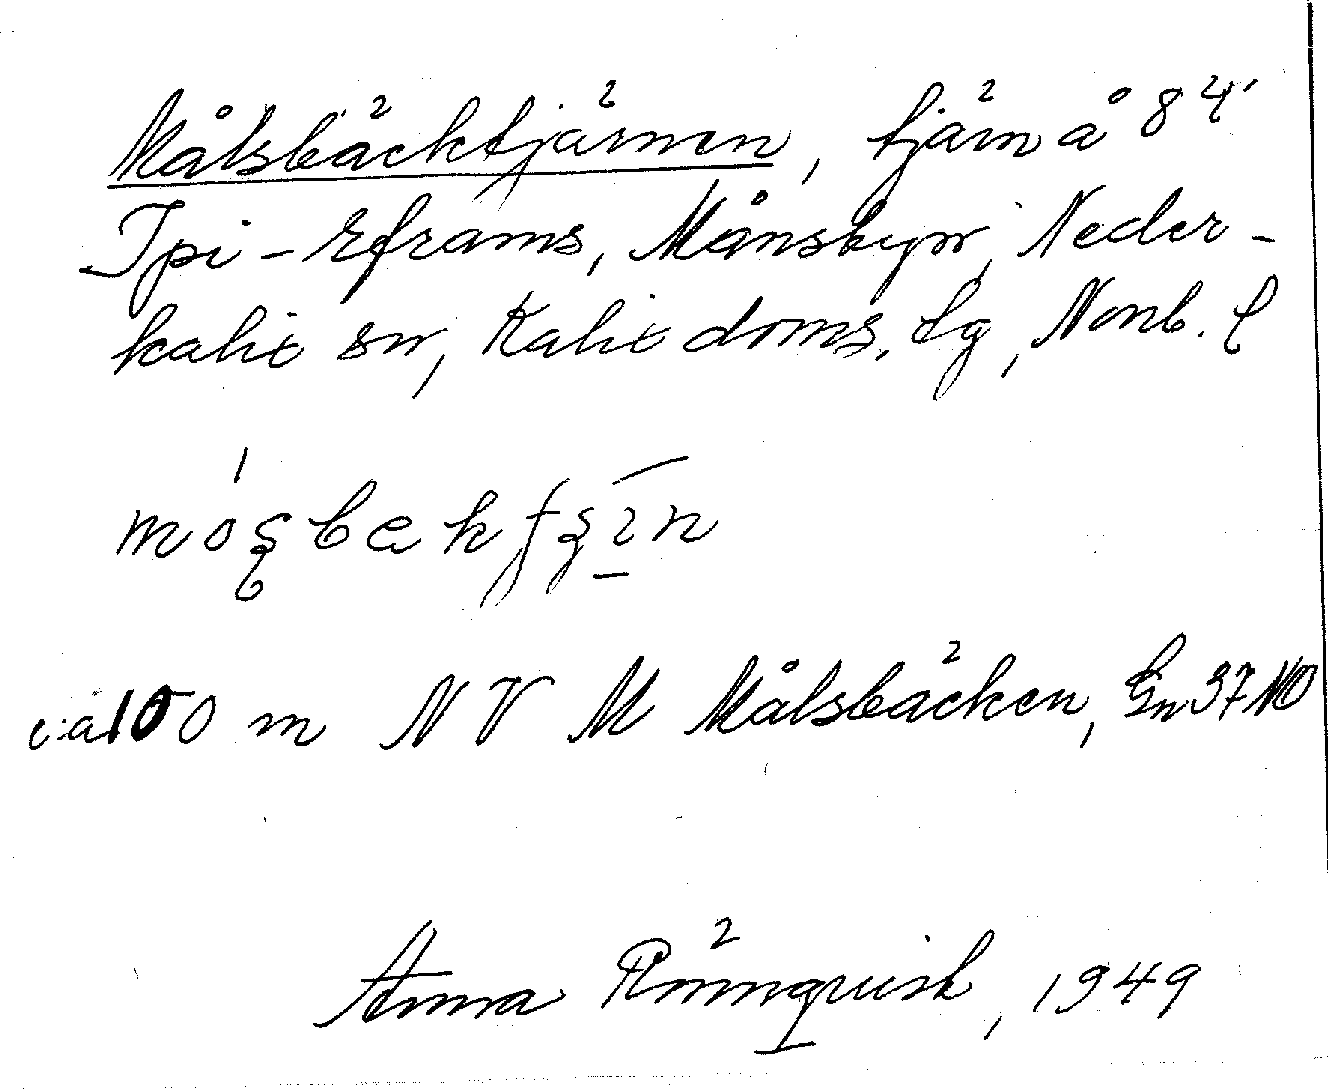 Målsbäcktjärnen, tjärn å 8⁴
Ipi-Eframs, Månsbyn, Neder-
kalix sn, Kalix doms. lg, Norrb. l
ca 100 m NV M Målsbäcken, Gn 37 NO
Anna Rönnqvist, 1949